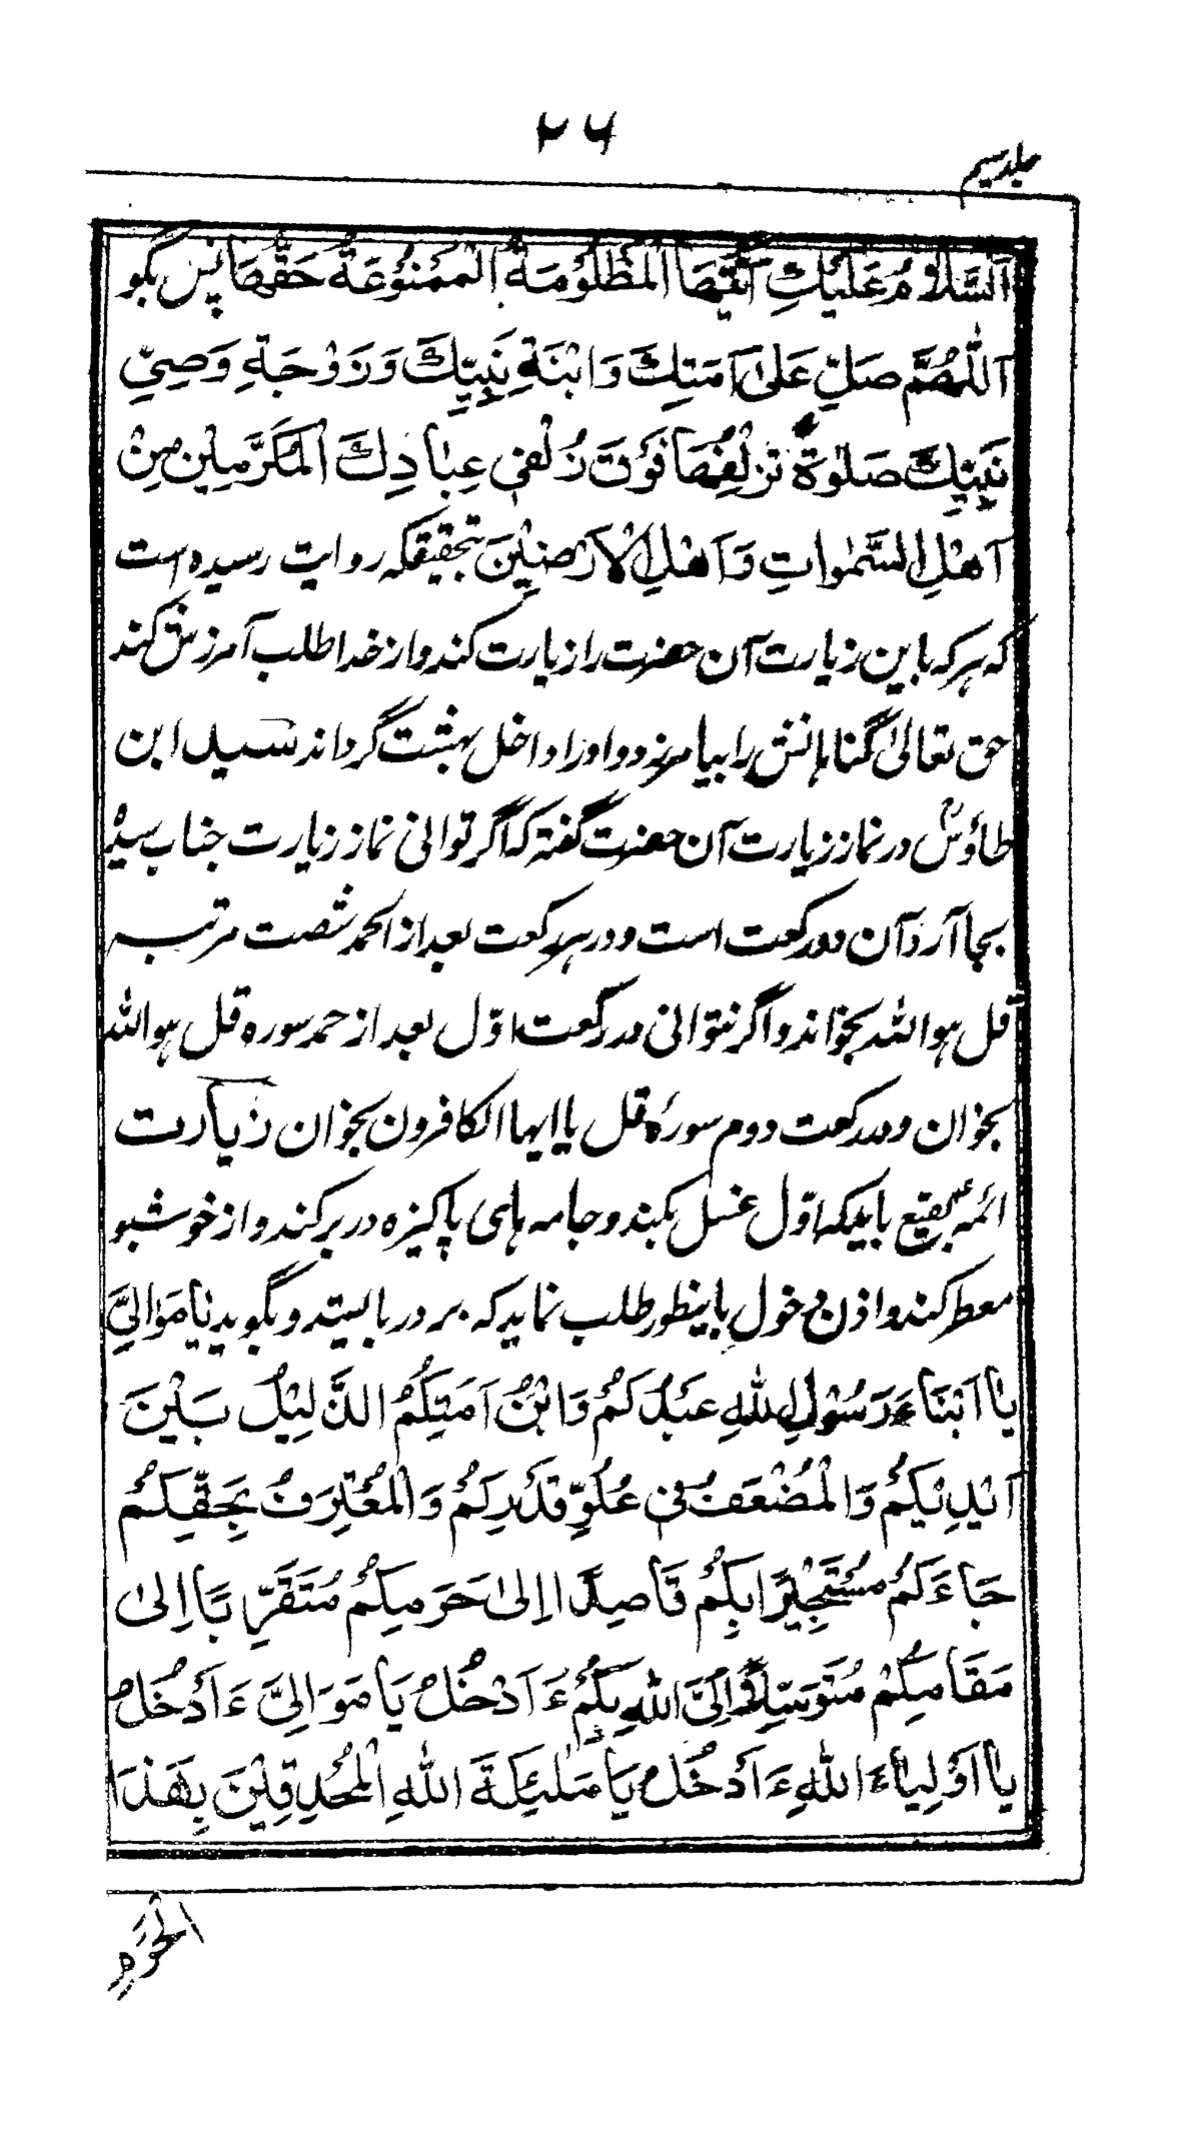 ۲۶
جلد سیم
اَلسَّلَامُ عَلَیْكِ اَیَّتُهَا الْمَظْلُوْمَةُ الْمَمْنُوْعَةُ حَقُّهَا پس بگو
اَللّٰهُمَّ صَلِّ عَلٰی اَمَتِكَ وَابْنَةِ نَبِیِّكَ وَزَوْجَةِ وَصِیِّ
نَبِیِّكَ صَلٰوةً تُزْلِفُهَا فَوْقَ زُلْفٰی عِبَادِكَ الْمُكَرَّمِیْنَ مِنْ
اَهْلِ السَّمٰوَاتِ وَاَهْلِ الْاَرَضِیْنَ بتحقیقکه روایت رسیده است
که هرکه باین زیارت آن حضرت را زیارت کند و از خدا طلب آمرزش کند
حق تعالیٰ گناهانش را بیامرزد و او را داخل بهشت گرداند سید ابن
طاؤس در نماز زیارت آن حضرت گفته که اگر توانی نماز زیارت جناب سیده
بجا آرد آن دو رکعت است و در هر رکعت بعد از الحمد شصت مرتبه
قل هو الله بخواند و اگر نتوانی در رکعت اوّل بعد از حمد سوره قل هو الله
بخوان و در رکعت دوم سورهٔ قل یا ایها الکافرون بخوان زیارت
ائمه بقیع باید که اوّل غسل بکند و جامه های پاکیزه در بر کند و از خوشبو
معطر کند و اذن دخول باینطور طلب نماید که بر در بایستد و بگوید یَا مَوَالِیَّ
یَا اَبْنَاءَ رَسُوْلِ اللهِ عَبْدُكُمْ وَابْنُ اَمَتِكُمُ الذَّلِیْلُ بَیْنَ
اَیْدِیْكُمْ وَالْمُضْعَفُ فِیْ عُلُوِّ قَدْرِكُمْ وَالْمُعْتَرِفُ بِحَقِّكُمْ
جَاءَكُمْ مُسْتَجِیْرًا بِكُمْ قَاصِدًا اِلٰی حَرَمِكُمْ مُتَقَرِّبًا اِلٰی
مَقَامِكُمْ مُتَوَسِّلًا اِلَی اللهِ بِكُمْ ءَاَدْخُلُ یَا مَوَالِیَّ ءَاَدْخُلُ
یَا اَوْلِیَاءَ اللهِ ءَاَدْخُلُ یَا مَلٰئِكَةَ اللهِ الْمُحْدِقِیْنَ بِهٰذَا
الْحَرَمِ